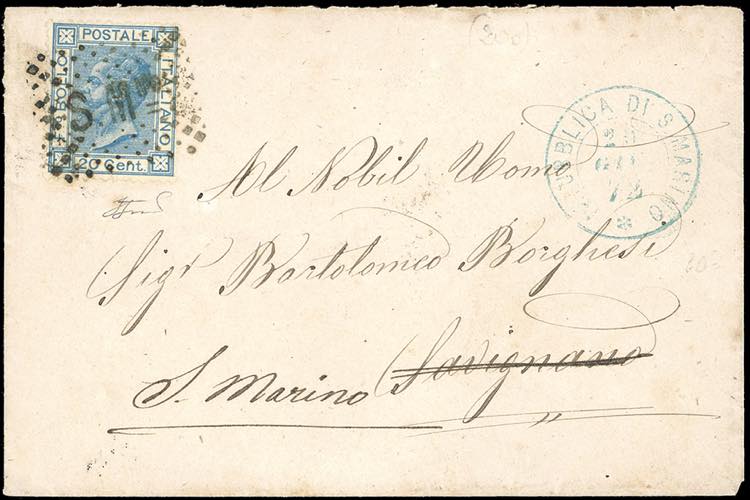 POSTALE
BOLLO
ITALIANO
20 Cent.
S M
REPUBBLICA DI S. MARINO
72
Al Nobil Uomo
Sigr Bartolomeo Borghesi
S. Marino Savignano